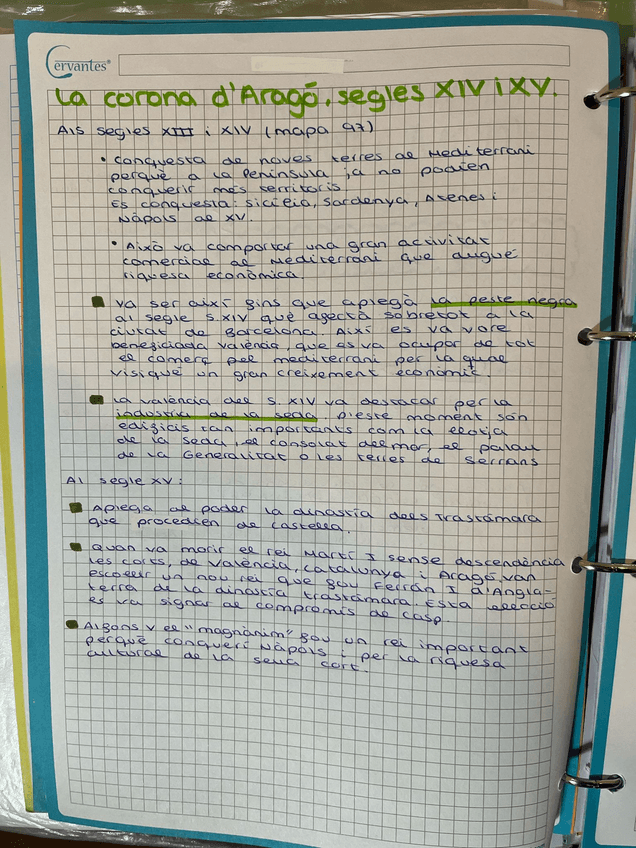 Cervantes®
La corona d'Aragó, segles XIV i XV.
Als segles XIII i XIV (mapa 97)
• Conquesta de noves terres al Mediterrani
perquè a la Península ja no podien
conquerir més territoris.
Es conquesta: Sicília, Sardenya, Atenes i
Nàpols al XV.
• Això va comportar una gran activitat
comercial al Mediterrani que dugué
riquesa econòmica.
Va ser així fins que aplegà la peste negra
al segle S.XIV que afectà sobretot a la
ciutat de Barcelona. Així es va vore
beneficiada València, que es va ocupar de tot
el comerç pel mediterrani per la qual
visiqué un gran creixement econòmic.
La València del S. XIV va destacar per la
indústria de la seda. D'este moment són
edificis tan importants com la llotja
de la seda, el consolat del mar, el palau
de la Generalitat o les torres de Serrans
Al segle XV:
Aplega al poder la dinastía dels Trastámara
que procedien de Castella.
Quan va morir el rei Martí I sense descendència
les corts, de València, Catalunya i Aragó, van
escollir un nou rei que fou Ferrán I d'Angla-
terra de la dinastía trastámara. Esta elecció
es va signar al compromís de casp.
Alfons V el "magnànim" fou un rei important
perquè conquerí Nàpols i per la riquesa
cultural de la seua cort.